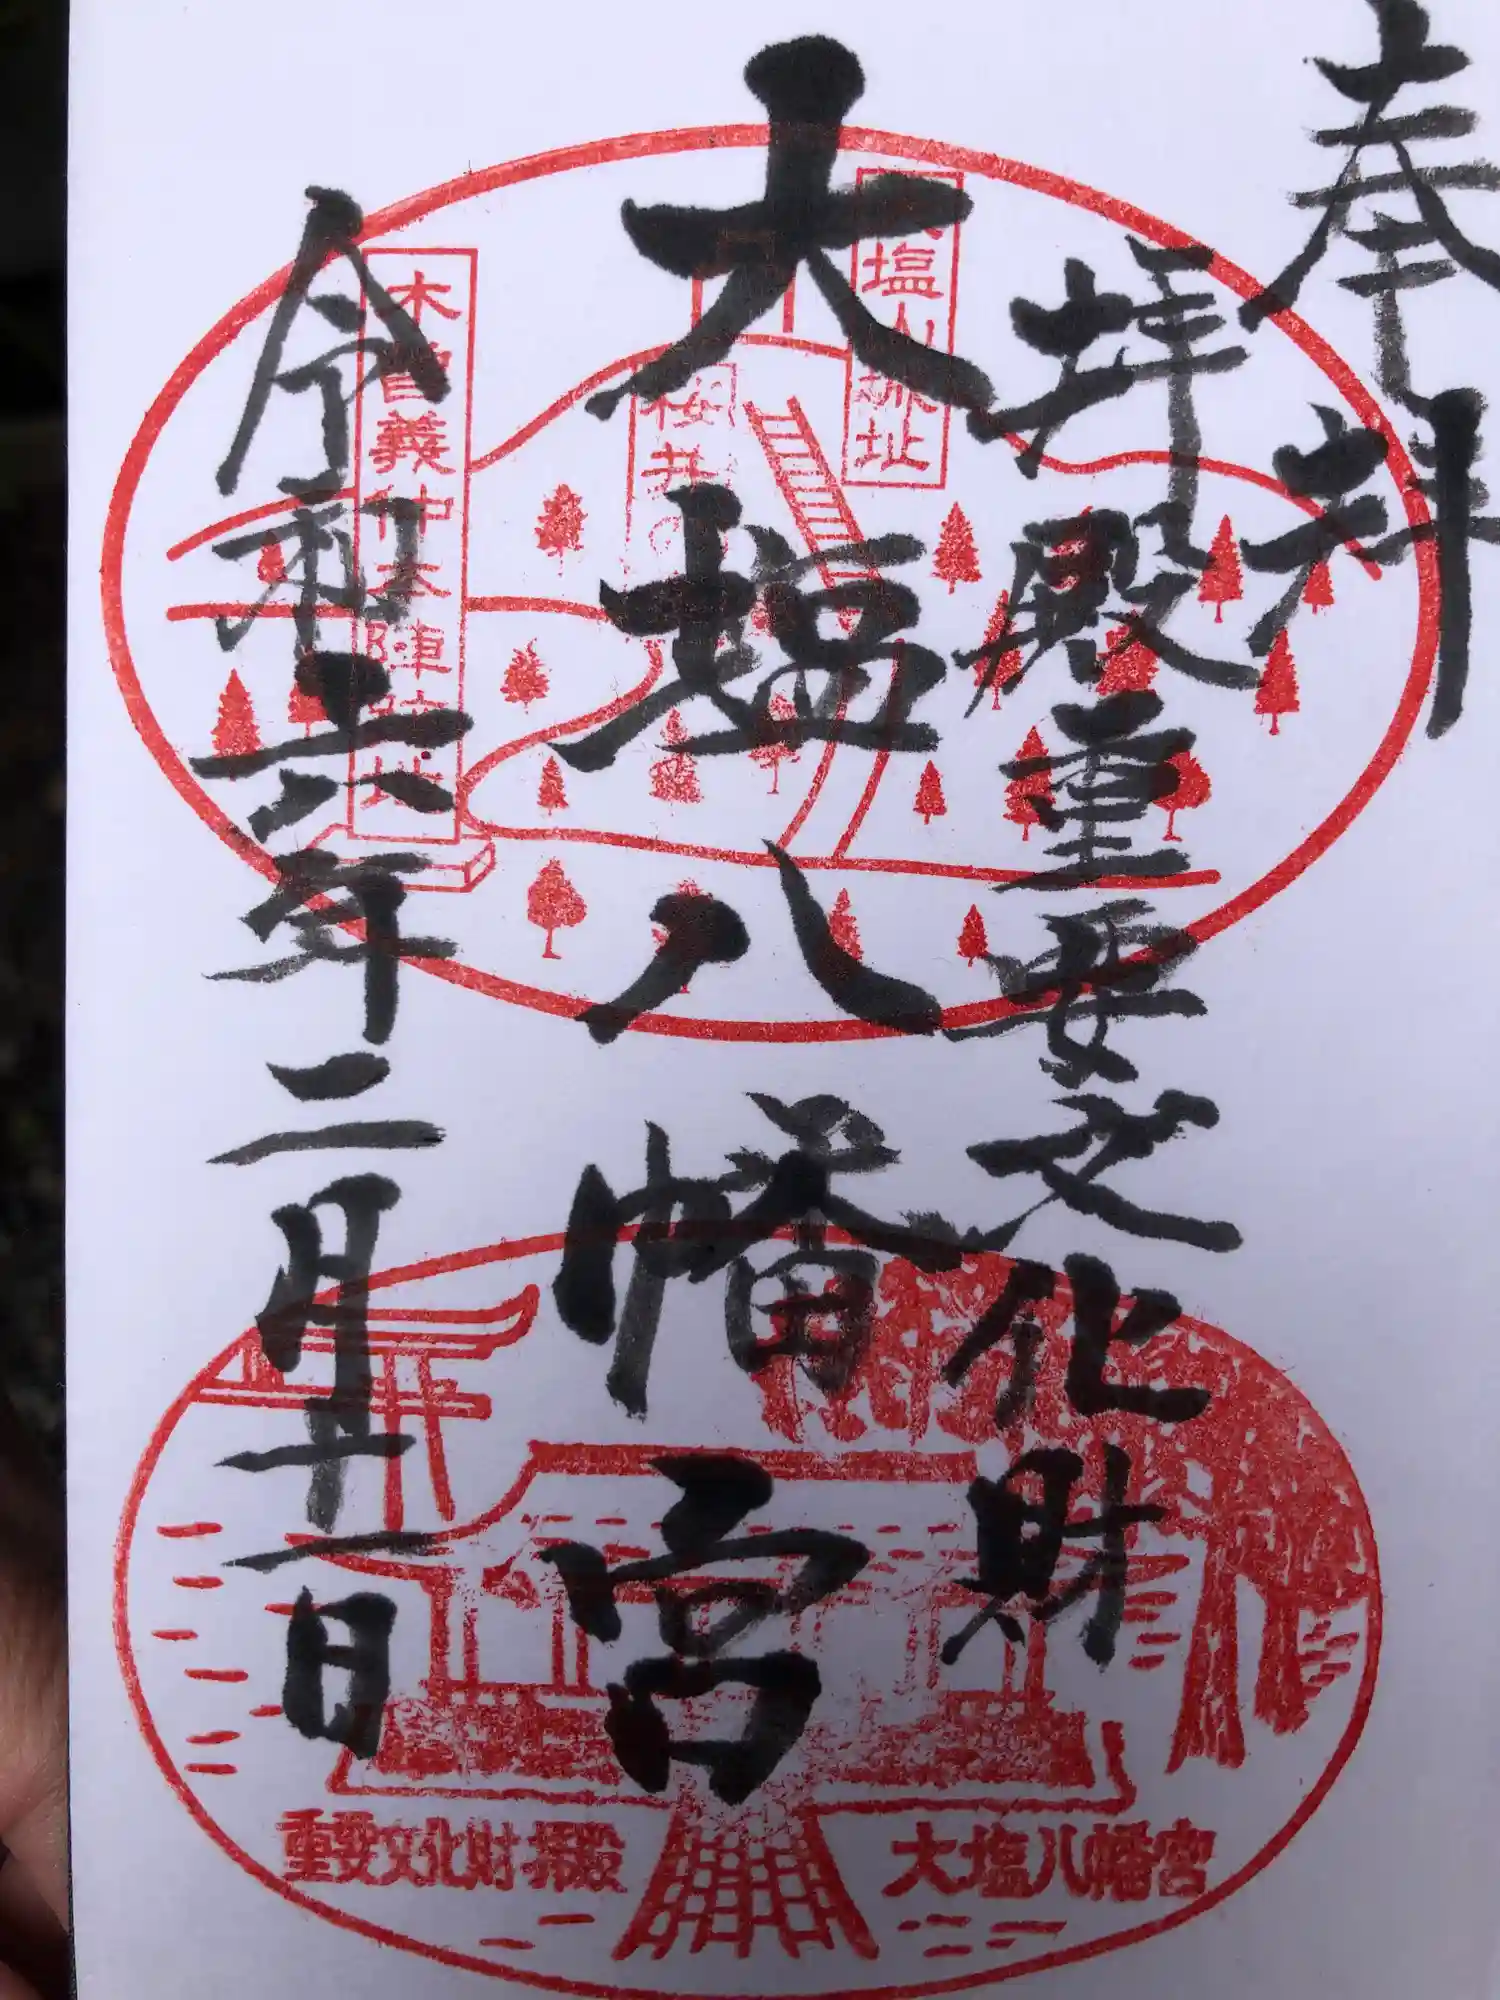 奉拝
拝殿重要文化財
大塩八幡宮
令和六年二月十一日
大塩山城址
桜井
木曽義仲本陣
重要文化財拝殿
大塩八幡宮